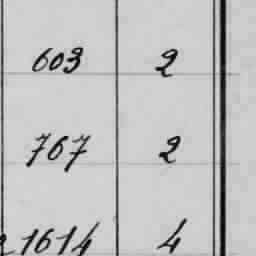 603 2
767 2
1614 4